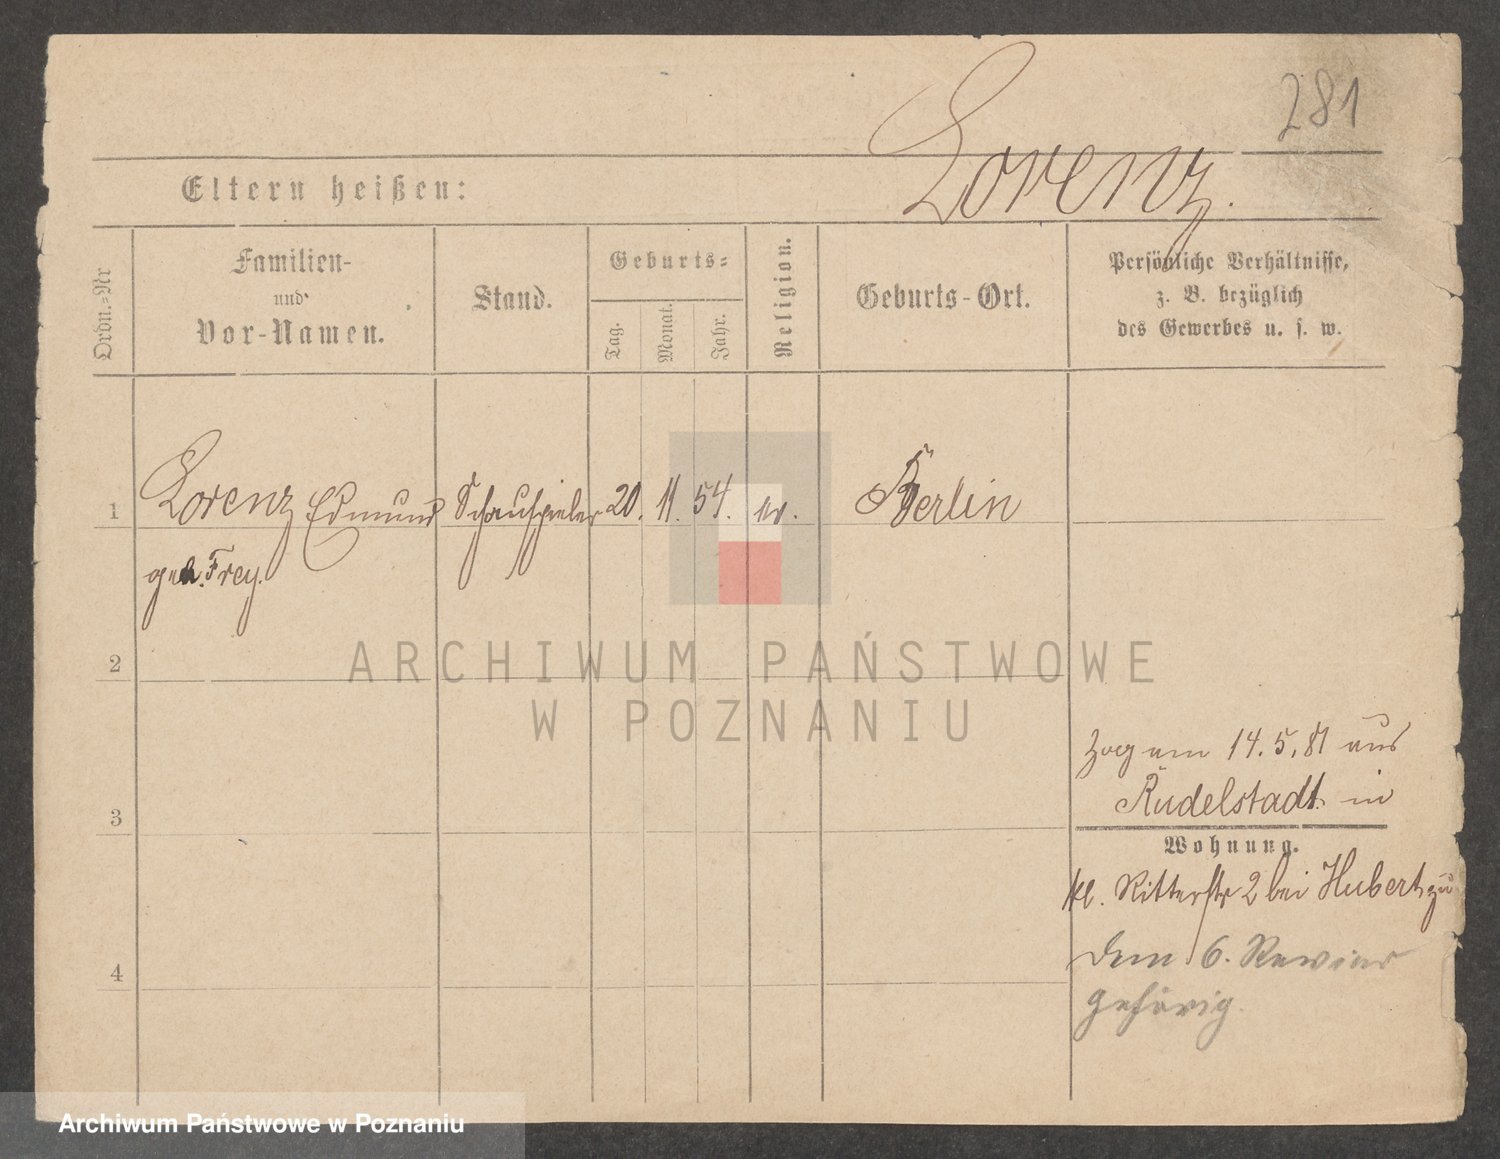 281
Lorenz.
Eltern heißen:
Ordn.=Nr
Familien-
und
Vor-Namen.
Stand.
Geburts=
Tag.
Monat.
Jahr.
Religion.
Geburts-Ort.
Persönliche Verhältnisse,
z. B. bezüglich
des Gewerbes u. s. w.
1 Lorenz Edmund Schauspieler 20. 11. 54. ev. Berlin
gen. Frey.
2
ARCHIWUM PAŃSTWOWE
W POZNANIU
zog am 14. 5. 81 aus
Rudelstadt in
3
Wohnung.
kl. Ritterstr 2 bei Hubert zu
dem 6. Revier
4
gehörig.
Archiwum Państwowe w Poznaniu